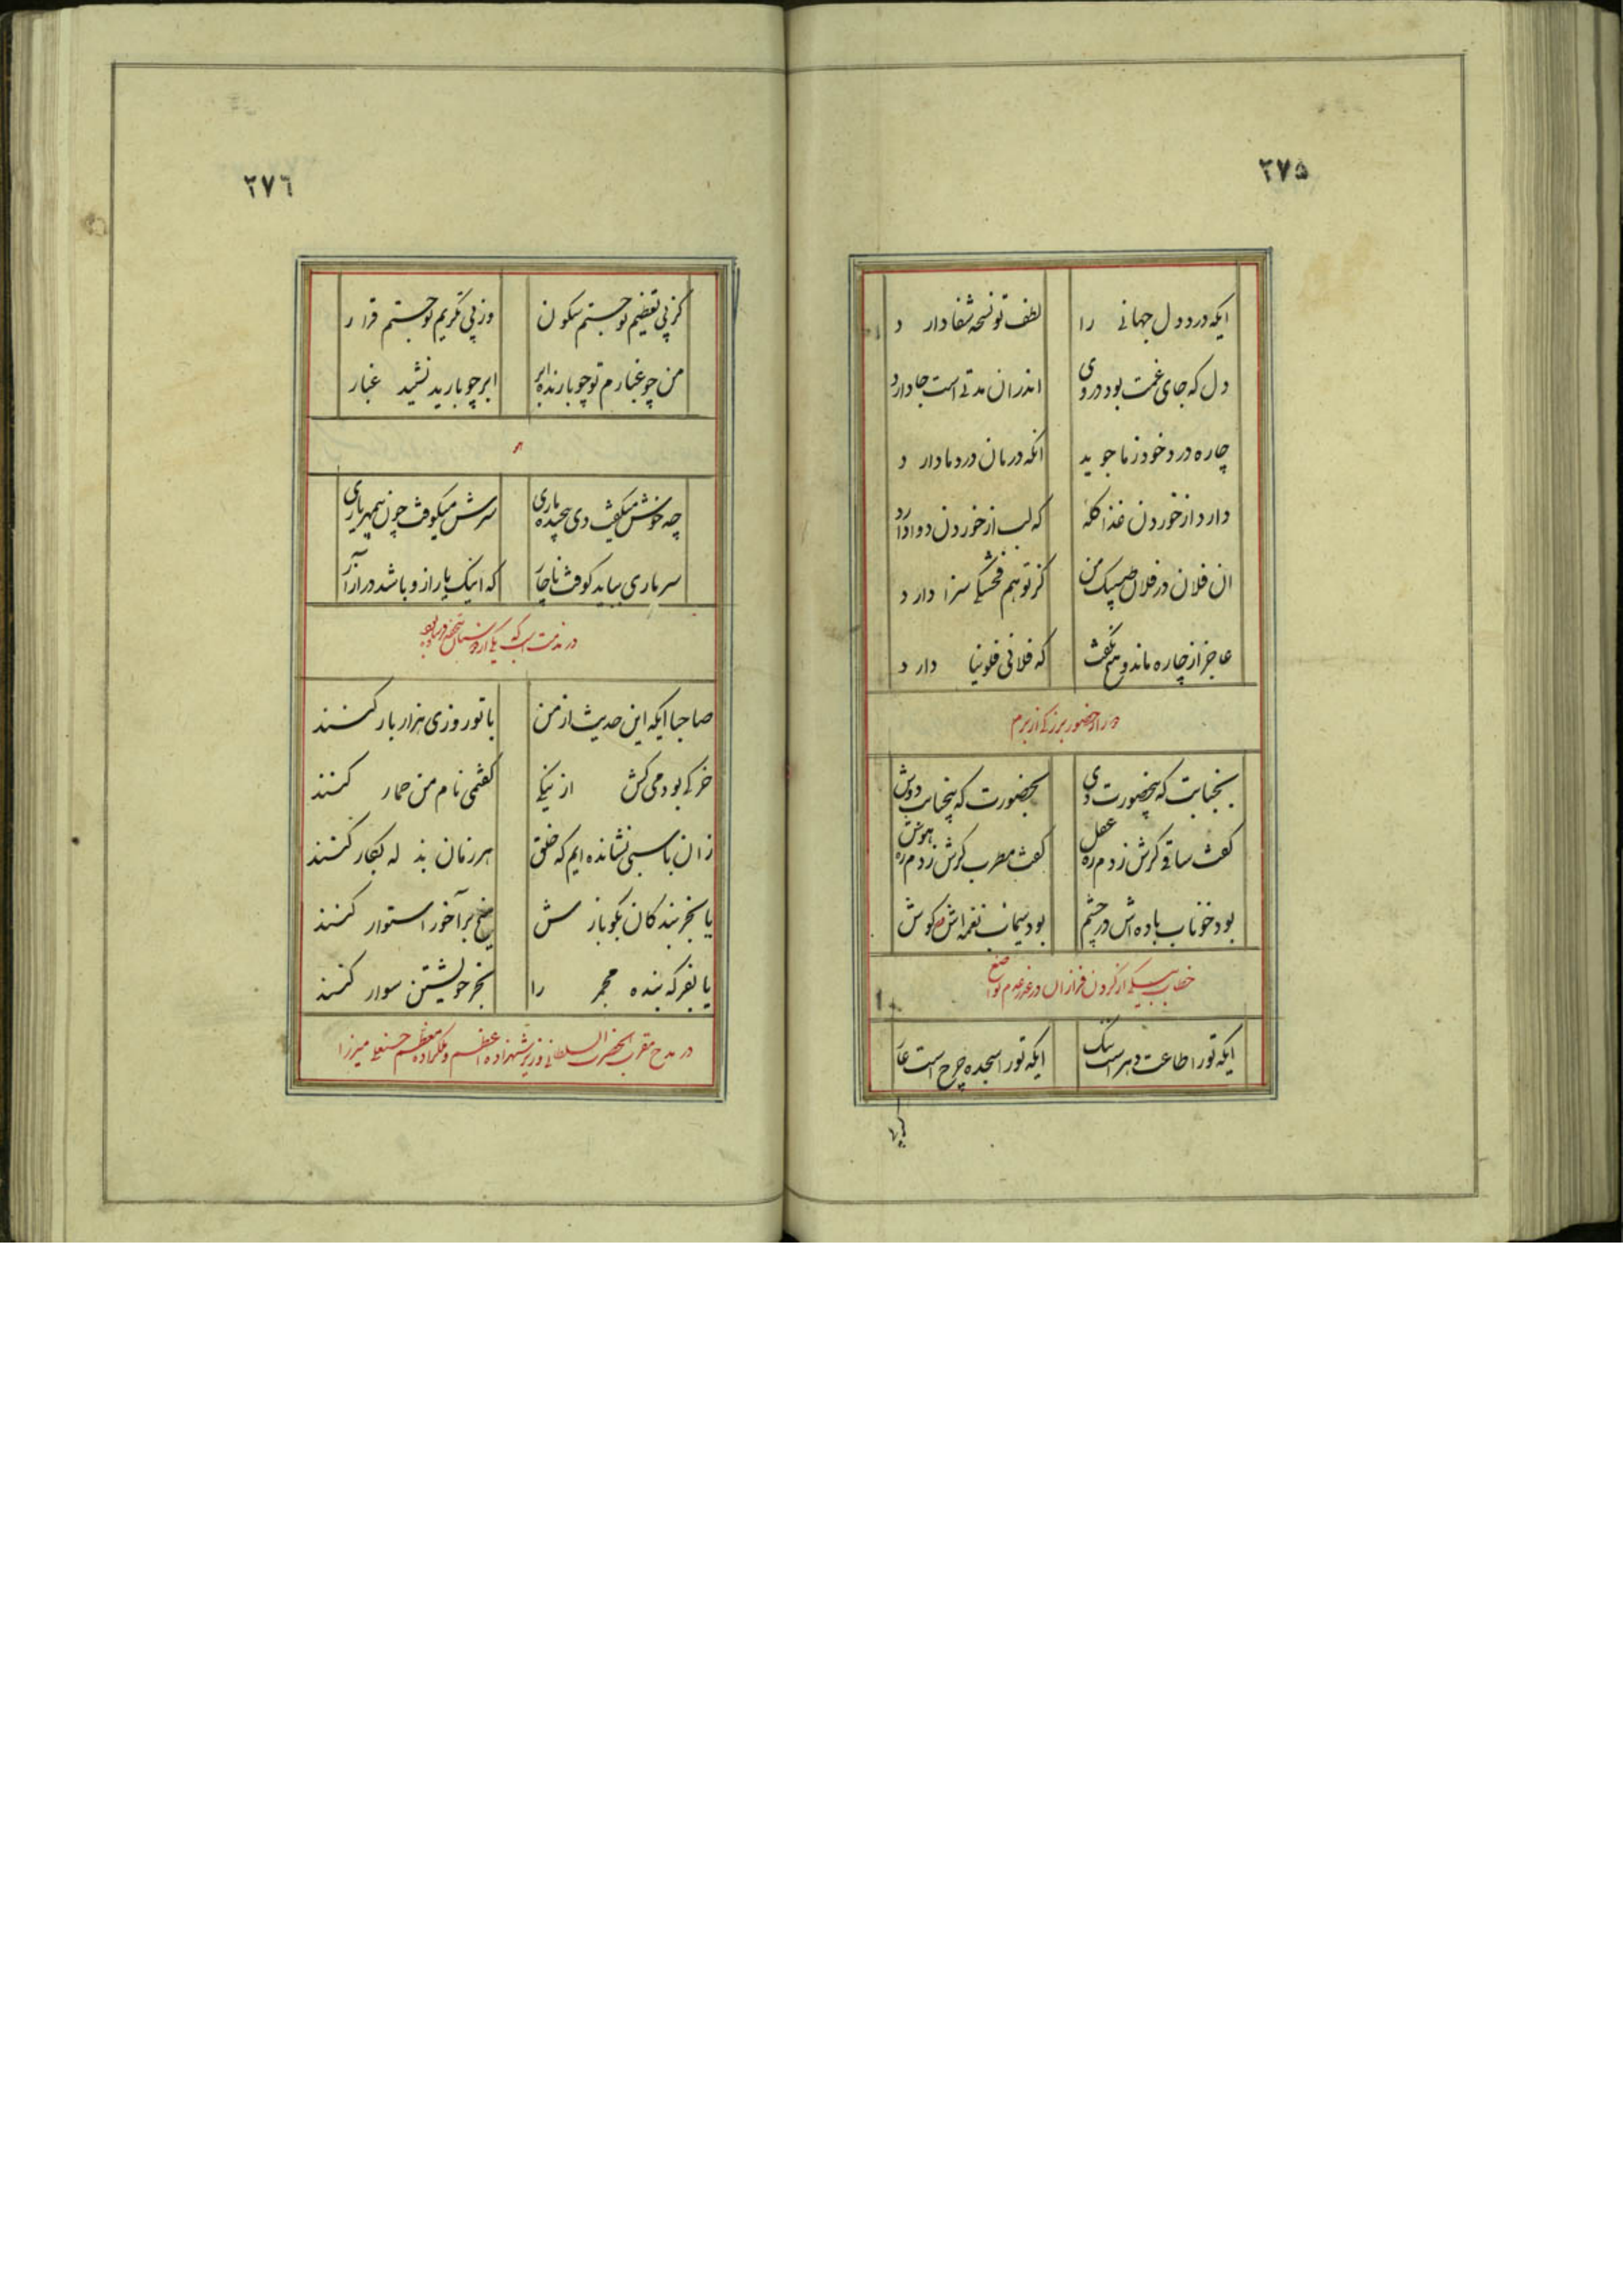 ۲۷۵
ایکه درد دل جهانی را لطف تو نسخه شفا دارد
دل که جای غمت بود دروی اندران مدتی است جا دارد
چاره درد خود ز ما جوید انکه درمان درد ما دارد
دارد از خوردن غذا گله که لب از خوردن دوا دارد
ان فلان در فلان طبیبک من کز تو هم فحشکی سزا دارد
عاجز از چاره ماند و هم نگفت که فلانی فلونیا دارد
بجنابت که بیحضورت دی بحضورت که بیجنابت دوش
گفت ساقی گرش زدم ره عقل گفت مطرب گرش زدم ره هوش
بود خوناب باده اش در چشم بود سیماب نغمه اش در گوش
ایکه تو را طاعت دهر است ننگ ایکه تو را سجده چرخ است عار
گر پی
۲۷۶
کز پی تعظیم تو جستم سکون وز پی تکریم تو جستم قرار
من چو غبارم تو چو بارنده ابر ابر چو بارید نشیند غبار
چه خوش میگفت دی پیچیده ماری سرش میکوفت چون بیمهر یاری
سر ماری بباید کوفت ناچار که اینک یار ازو باشد در آزار
صاحبا ایکه این حدیث از من با تو روزی هزار بار کنند
خرکی بود می کش از نیکی گفتمی نام من حمار کنند
زان باسبی نشانده ایم که خلق هر زمان بذله بکار کنند
یا بخربندگان بگو بازش میخ بر آخور استوار کنند
یا نفر که بنده مجمر را بخر خویشتن سوار کنند
در مدح مقرب الحضرت السلطانی وزیر شهزاده اعظم و ملکزاده معظم حسنعلی میرزا